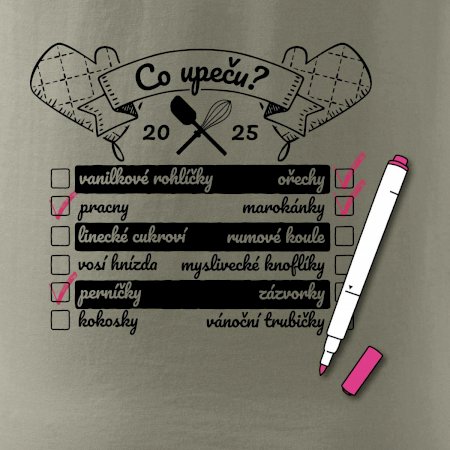 Co upeču?
20 25
vanilkové rohlíčky ořechy
pracny marokánky
linecké cukroví rumové koule
vosí hnízda myslivecké knoflíky
perníčky zázvorky
kokosky vánoční trubičky